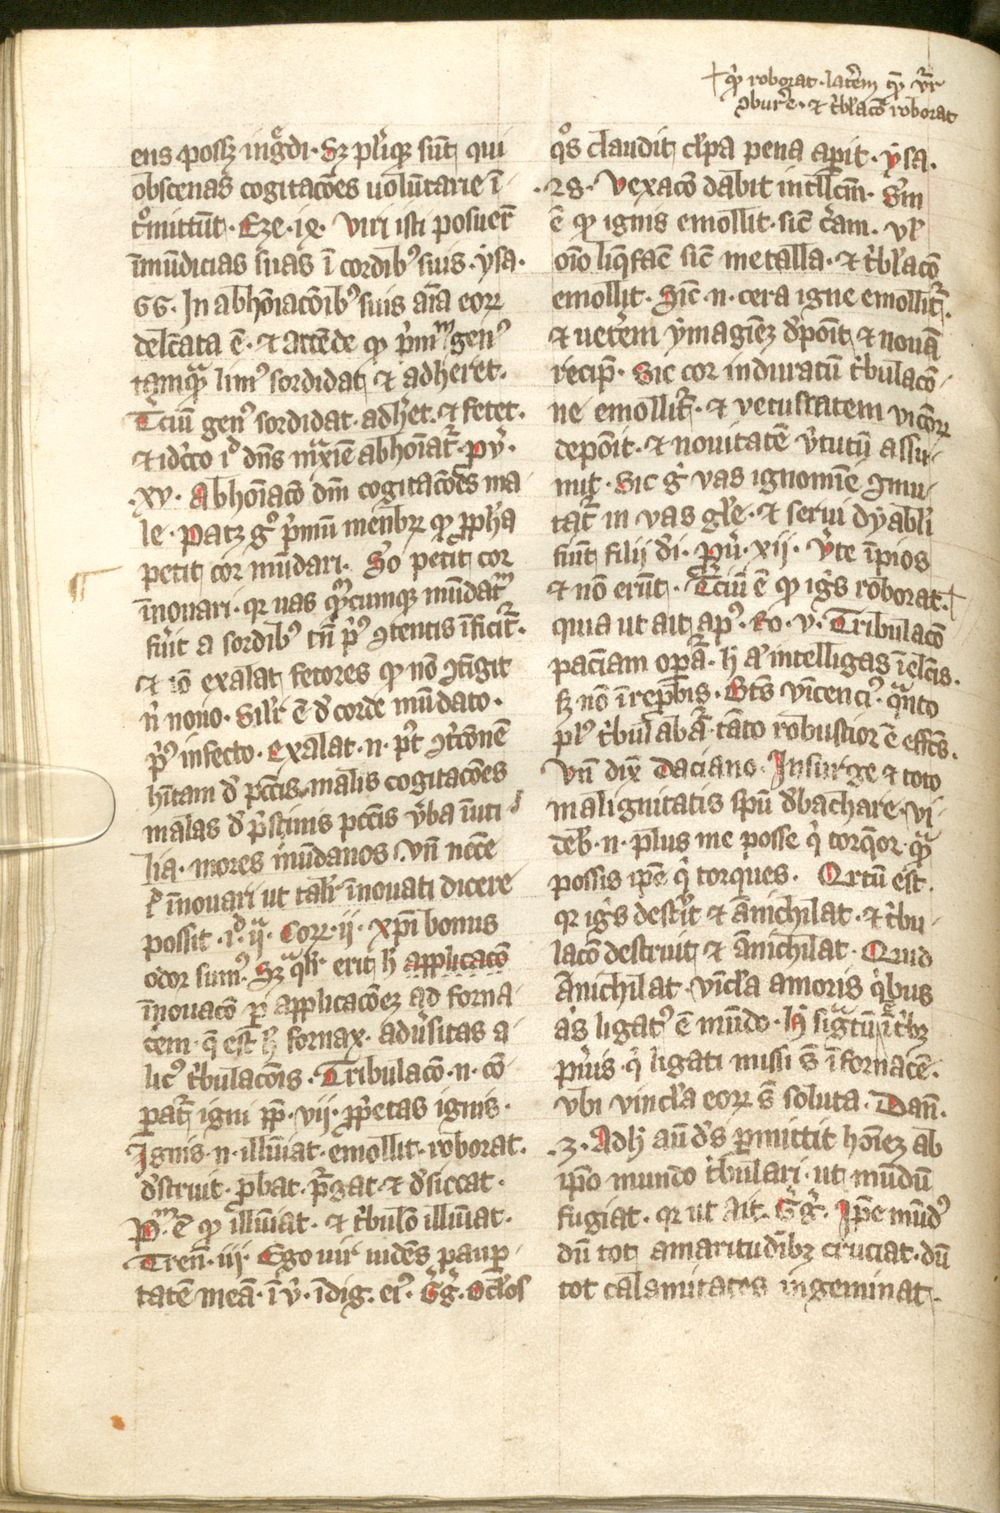 + qr̄ roborat · lat̄em q̄ ur̄
ɔbur̄e · ⁊ t̄bl̄acō roborat
ens possꝫ ing̃di · Sꝫ pliqꝫ sūt qui
obscenas cogitacōes uolūtarie ī-
t̄mittūt · Eze · ix · Viri isti posuer̄
īmūdicias suas ī cordibꝰ suis · ysa ·
66 · In abhōiacōibꝰ suis aīa eoꝝ
delc̄ata ē · ⁊ attēde qͦ p̄mᵐ genꝰ
tamqᵃ limꝰ sordidat ⁊ adheret ·
Tciū genꝰ sordidat · adhet · ⁊ fetet ·
⁊ idcͦco iᵈ dn̄s mᵃxīe abhōiatᵣ · pv̄ ·
xv · Abhōiacō dm̄ cogitacōēs ma
le · Patꝫ gͦ p̄mū membꝝ qͦ pph̄a
petit cor mūdari · Sͦo petit cor
īnouari · qr uas qᵐcumqꝫ mūdatᵐ
fu̇it a sordibꝰ tn̄ pꝰ ɔtentis īficitᵣ ·
⁊ iō exalat fetores qͦ nō ɔtīgit
n̄ nouo · Silr̄ ē d̄ corde mūdato ·
pꝰ infecto · Exalat · n · pt̄ ɔtc̄onē
hītam d̄ pctīs malis cogitacōes
malas d̄ p̄stinis pctīs v̄ba īuti
lia · mores mūdanos · Vn̄ nccē
ē īnouari ut talr̄ īnouati dicere
possit · iᵈ · ijᵃ · Corꝝ · ij · xp̄i bonus
odor sumꝰ · Sꝫ qᵃlr̄ erit h̄ applicacō
īnouacō p applicacōeꝫ ad forna-
cem · q̄ est h̄ fornax · adu̇sitas a-
licꝰ t̄bulacōis · Tribulacō · n · cō
patᵣ igni pp̄ · vij · pp̄etas ignis ·
Ignis · n · illūīat · emollit · roborat ·
d̄struit · p̄bat · p̄gat · ⁊ d̄siccat ·
Pᵐ ē qͦ illūīat · ⁊ t̄bulō illūīat ·
Tren̄ · iij · Ego uir uidēs paup-
tatē meā · ī v̄ · īdig · eiꝰ · Gg̃ · Oclos
qͦs claudit clpa pena apit · ysa ·
28 · Vexacō dabit intllcm̄ · Sm̄
ē qͦ ignis emollit · sic̄ ceram · ul̄
oīo liqͤfac̄ sic̄ metalla · ⁊ t̄bl̄acō
emollit · Sic̄ · n · cera igne emollitᵣ ·
⁊ uet̄em ymagīeꝫ d̄pōit ⁊ nouā
recip̄ · Sic cor induratū t̄bulacō-
ne emollitᵣ · ⁊ vetustatem vicōꝝ
depōit · ⁊ nouitatē v̄tutū assu-
mit · Sic gͦ vas ignomīe ɔmu-
tatᵣ in vas gl̄e · ⁊ serui dyabli
fiūt filij dei · Pu̇ · xij · v̄te īpios
⁊ nō erūt · Tciū ē qͦ igīs roborat · +
quia ut ait apꝰ · Ro · v · Tribulacō
pac̄iam opatᵣ · h̄ aͧ intelligas ī elcīs ·
sꝫ nō ī repbis · Bt̄s vīcenciꝰ qᵃnto
plꝰ t̄bulabatᵣ tāto robustior ē effc̄s ·
Vn̄ dix̄ Daciano · Insurge ⁊ toto
malignitatis spū d̄bachare · vi-
deb̄ · n · plus me posse qͥ torqͤor qᵃ
possis ip̄e qͥ torques · Qrtū est ·
qr igīs dest̄it ⁊ ānichilat · ⁊ t̄bu-
lacō destruit ⁊ ānichilat · Quid
Anichilat · vīcla amoris qͥbus
aīs ligatꝰ ē mūdo · H̄ sigᵃtū ī tͥbꝫ
pu̇is qͥ ligati missi s̄t ī fornacē ·
vbi vincla eoꝝ s̄t soluta · Dan̄ ·
3 · Adh̄ aūt d̄s pmittit hōieꝫ ab
ip̄o mundo t̄bulari · ut mūdū
fugiat · qr ut ait · Gg̃ · Ip̄e mūdꝰ
dū tot amaritudībꝫ cruciat · dū
tot calamitates ingeminat ·